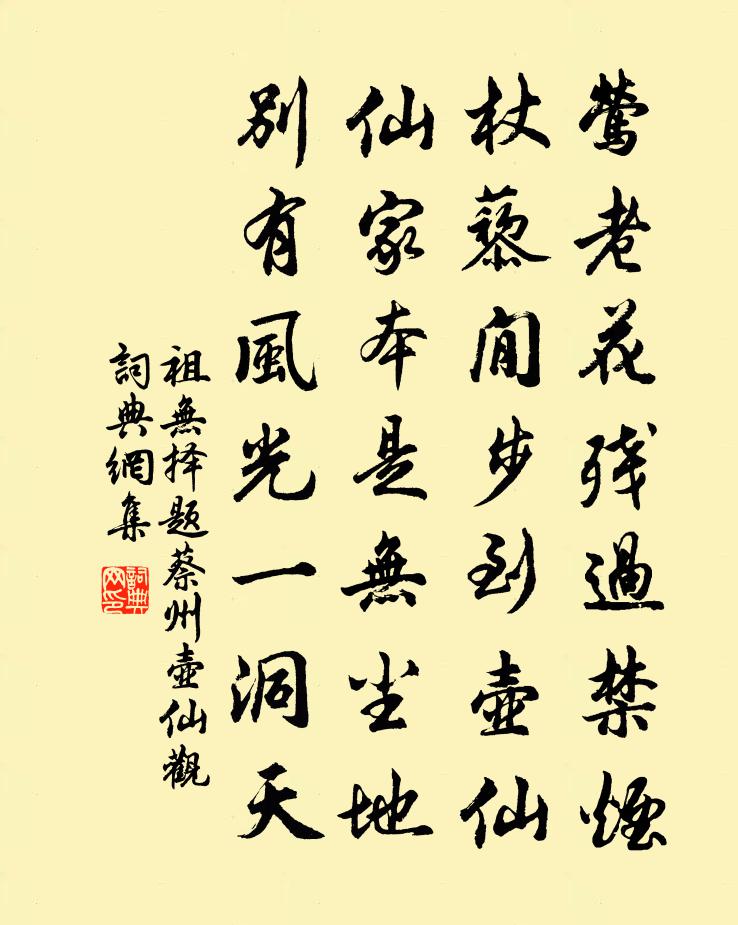 鶯老花残過禁煙
杖藜閒步到壺仙
仙家本是無塵地
別有風光一洞天
祖無择题蔡州壺仙觀
詞典網集
詞典网印